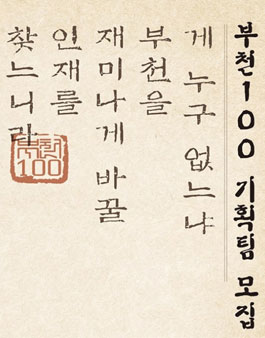 부천100 기획팀 모집
게 누구 없느냐
부천을
재미나게 바꿀
인재를
찾느니라
부천
100